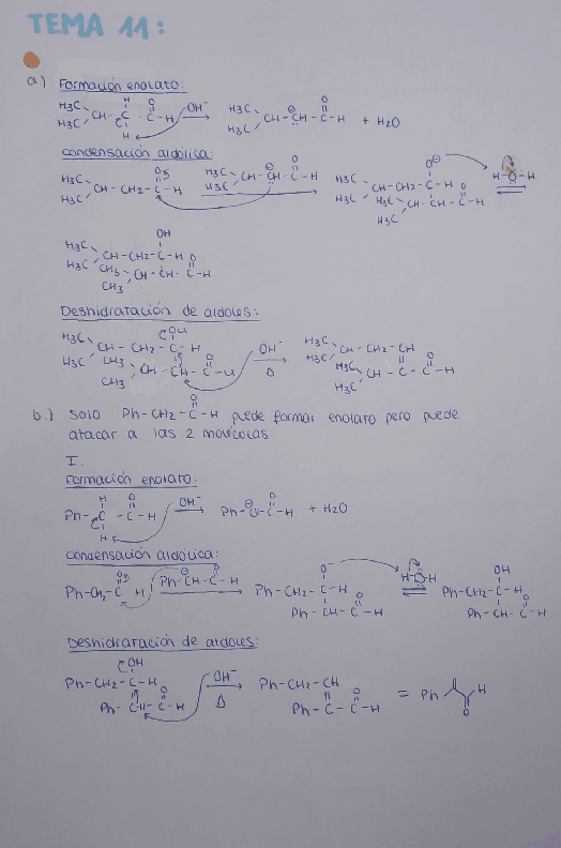 TEMA 11:
a) Formación enolato:
H3C H3C CH-C-C-H H O H OH- → H3C H3C CH-CH-C-H O + H2O
condensación aldólica:
H3C H3C CH-CH2-C-H O H3C H3C CH-CH-C-H O → H3C H3C CH-CH2-C-H O H3C H3C CH-CH-C-H O H-O-H ⇌
H3C H3C CH-CH2-C-H OH CH3 CH3 CH-CH-C-H O
Deshidratación de aldoles:
H3C H3C CH-CH2-C-H OH CH3 CH3 CH-CH-C-H O OH- → Δ H3C H3C CH-CH2-CH H3C H3C CH-C-C-H O
b) Solo Ph-CH2-C-H O puede formar enolato pero puede
atacar a las 2 moléculas
I.
Formación enolato:
Ph-C-C-H H O H OH- → Ph-C-C-H O + H2O
condensación aldólica:
Ph-CH2-C-H O Ph-CH-C-H O → Ph-CH2-C-H O Ph-CH-C-H O H-O-H ⇌ Ph-CH2-C-H OH Ph-CH-C-H O
Deshidratación de aldoles:
Ph-CH2-C-H OH Ph-CH-C-H O OH- → Δ Ph-CH2-CH Ph-C-C-H O = Ph H O